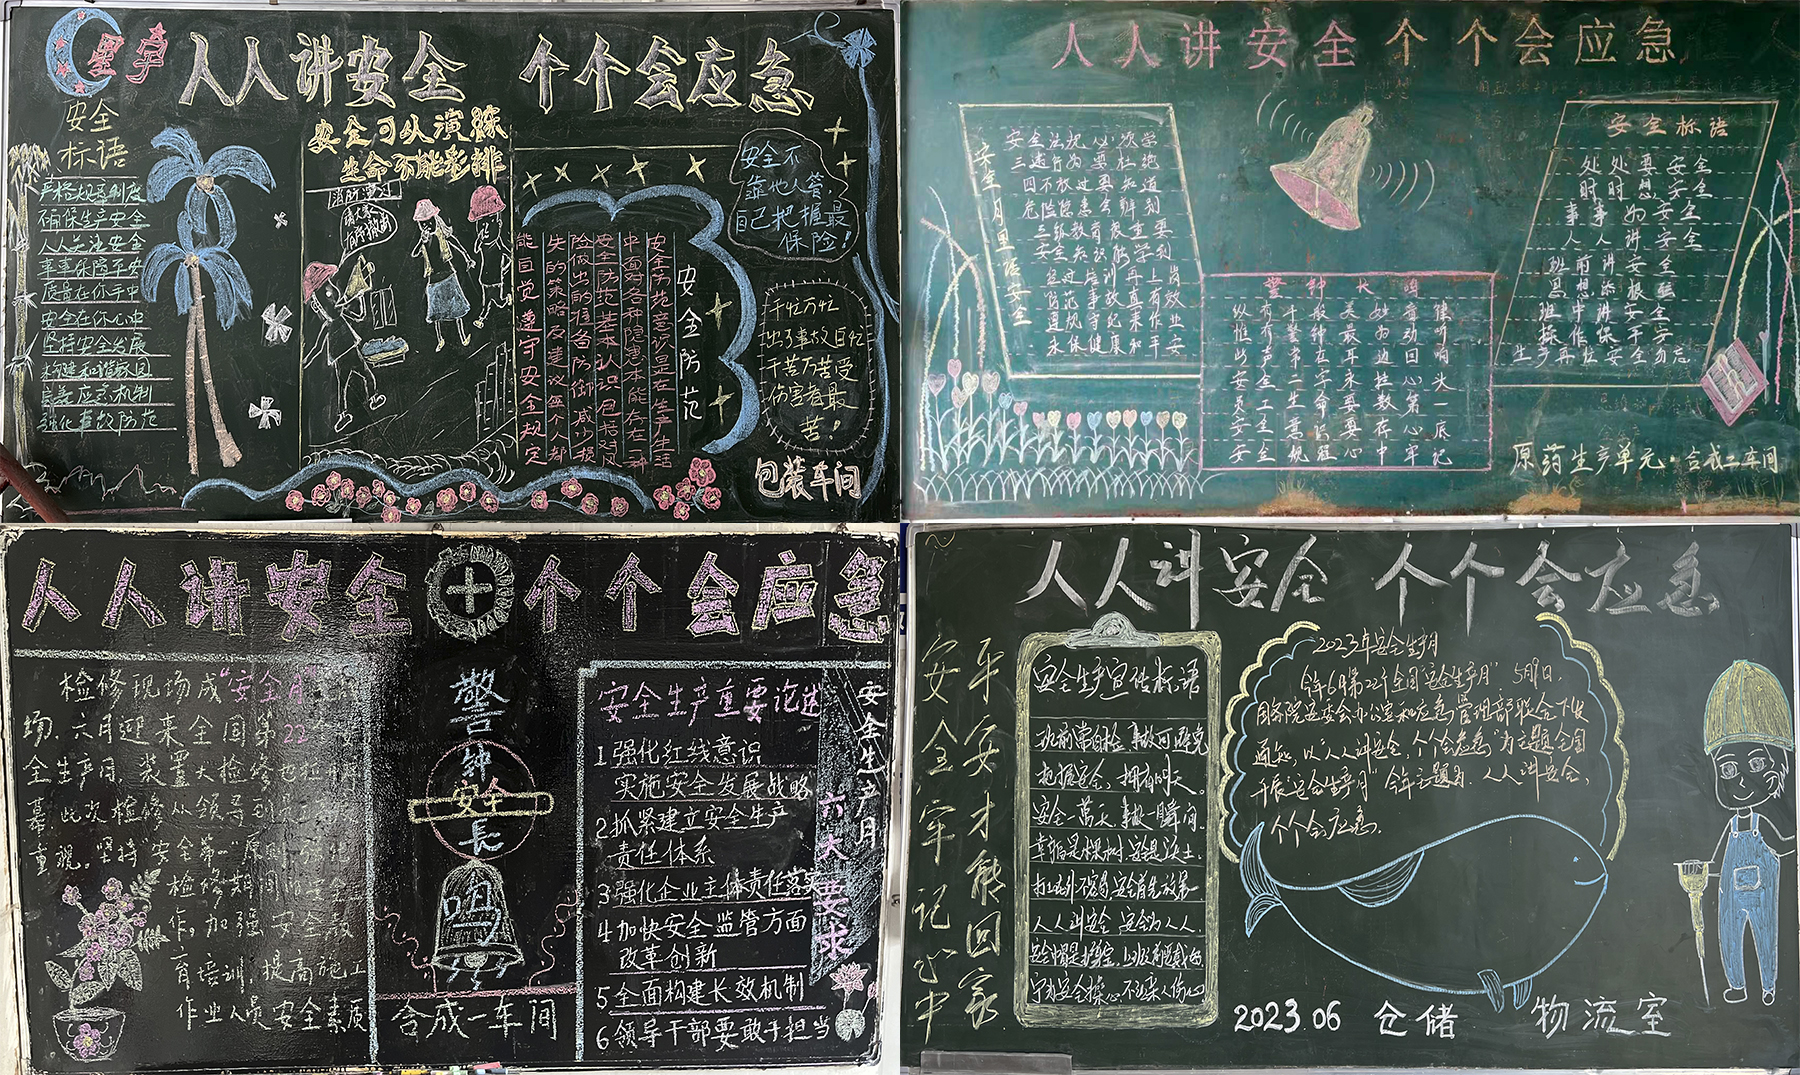 星宇
人人讲安全 个个会应急
安全
标语
严格规章制度
确保生产安全
人人关注安全
事事保障平安
质量在你手中
安全在你心中
坚持安全发展
构建和谐校园
完善应急机制
强化事故防范
安全可以演练
生命不能彩排
消防演习
安全防范
安全防范意识是在生产生活
中面对各种隐患本能存在一种
安全防范基本认识包括对风
险做出的准备防御减少损
失的策略及建议每个人都
能自觉遵守安全规定
安全不
靠他人管,
自己把握最
保险!
千忙万忙
出了事故白忙
千苦万苦受
伤害者最
苦!
包装车间
人人讲安全个个会应急
安全月里话安全
安全法规必须学
三违行为要杜绝
四不放过要知道
危险隐患会辨别
三级教育很重要
安全知识能学到
经过培训再上岗
牢记事故真有效
遵规守纪来作业
永保健康和平安
警钟长鸣
安全标语
处处要安全
时时想安全
事事为安全
人人讲安全
班前讲安全
思想添根弦
班中讲安全
操作保平安
生产再忙安全勿忘
原药生产单元·合成二车间
人人讲安全 个个会应急
检修现场成"安全月"
场.六月迎来全国第22个
全生产月,装置大检修也拉开
幕.此次检修从领导到员工
重视.坚持"安全第一"原则,强化
检修期间的安全
作,加强安全教
育培训,提高施工
作业人员安全素质
警钟长鸣
安全
合成一车间
安全生产重要论述
1强化红线意识
实施安全发展战略
2抓紧建立安全生产
责任体系
3强化企业主体责任落实
4加快安全监管方面
改革创新
5全面构建长效机制
6领导干部要敢于担当
六大要求
安全生产月
人人讲安全 个个会应急
安全牢记心中
平安才能回家
安全生产宣传标语
班前常自检 事故可避免
把握安全,拥有明天。
安全一万天,事故一瞬间.
幸福是棵树 安全是沃土.
人人讲安全 安全为人人.
2023年安全生产月
今年6月第22个全国"安全生产月" 5月1日,
国务院安委会办公室和应急管理部联合下发
通知,以"人人讲安全,个个会应急"为主题全国
开展"安全生产月"今年主题为:人人讲安全,
个个会应急.
2023.06 仓储 物流室